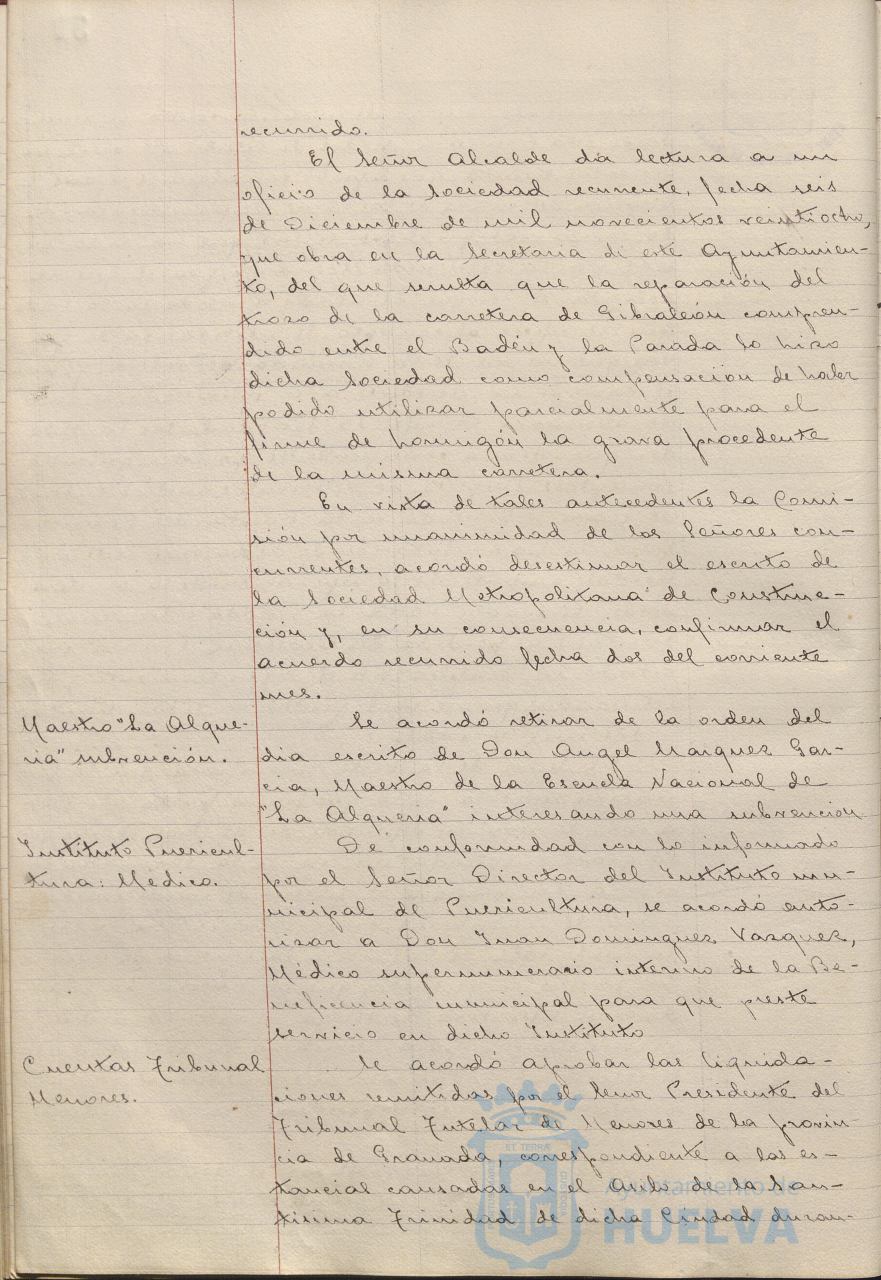 recurrido.
El Señor Alcalde da lectura a un
oficio de la Sociedad recurrente, fecha seis
de Diciembre de mil novecientos veintiocho,
que obra en la Secretaria de este Ayuntamien-
to, del que resulta que la reparación del
trozo de la carretera de Gibraleón compren-
dido entre el Badén y la Parada lo hizo
dicha Sociedad como compensación de haber
podido utilizar parcialmente para el
firme de hormigón la grava procedente
de la misma carretera.
En vista de tales antecedentes la Comi-
sión por unanimidad de los Señores con-
currentes, acordó desestimar el escrito de
la Sociedad Metropolitana de Construc-
ción y, en su consecuencia, confirmar el
acuerdo recurrido fecha dos del corriente
mes.
Maestro "La Alque-
ria" subvención.
Se acordó retirar de la orden del
dia escrito de Don Angel Marquez Gar-
cia, Maestro de la Escuela Nacional de
"La Alqueria" interesando una subvención
Instituto Puericul-
tura: Medico.
De conformidad con lo informado
por el Señor Director del Instituto mu-
nicipal de Puericultura, se acordó auto-
rizar a Don Juan Dominguez Vazquez,
Médico supernumerario interino de la Be-
neficencia municipal para que preste
servicio en dicho Instituto
Cuentas Tribunal
Menores.
Se acordó aprobar las liquida-
ciones remitidas por el Señor Presidente del
Tribunal Tutelar de Menores de la provin-
cia de Granada, correspondiente a las es-
tancias causadas en el Asilo de la San-
tisima Trinidad de dicha Ciudad duran-
Ayuntamiento de
HUELVA